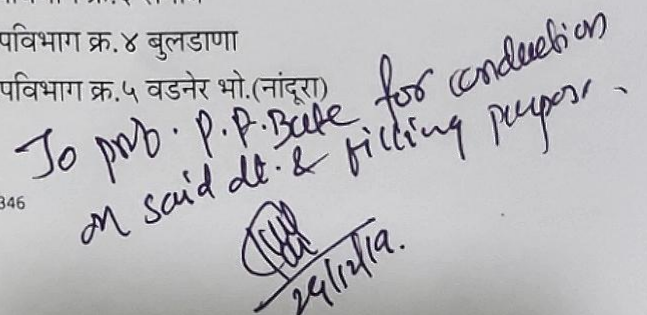 पविभाग क्र.४ बुलडाणा
पविभाग क्र.५ वडनेर भो.(नांदूरा)
To prob. P.P. for conduction
on said dt. & filling purpose.
346